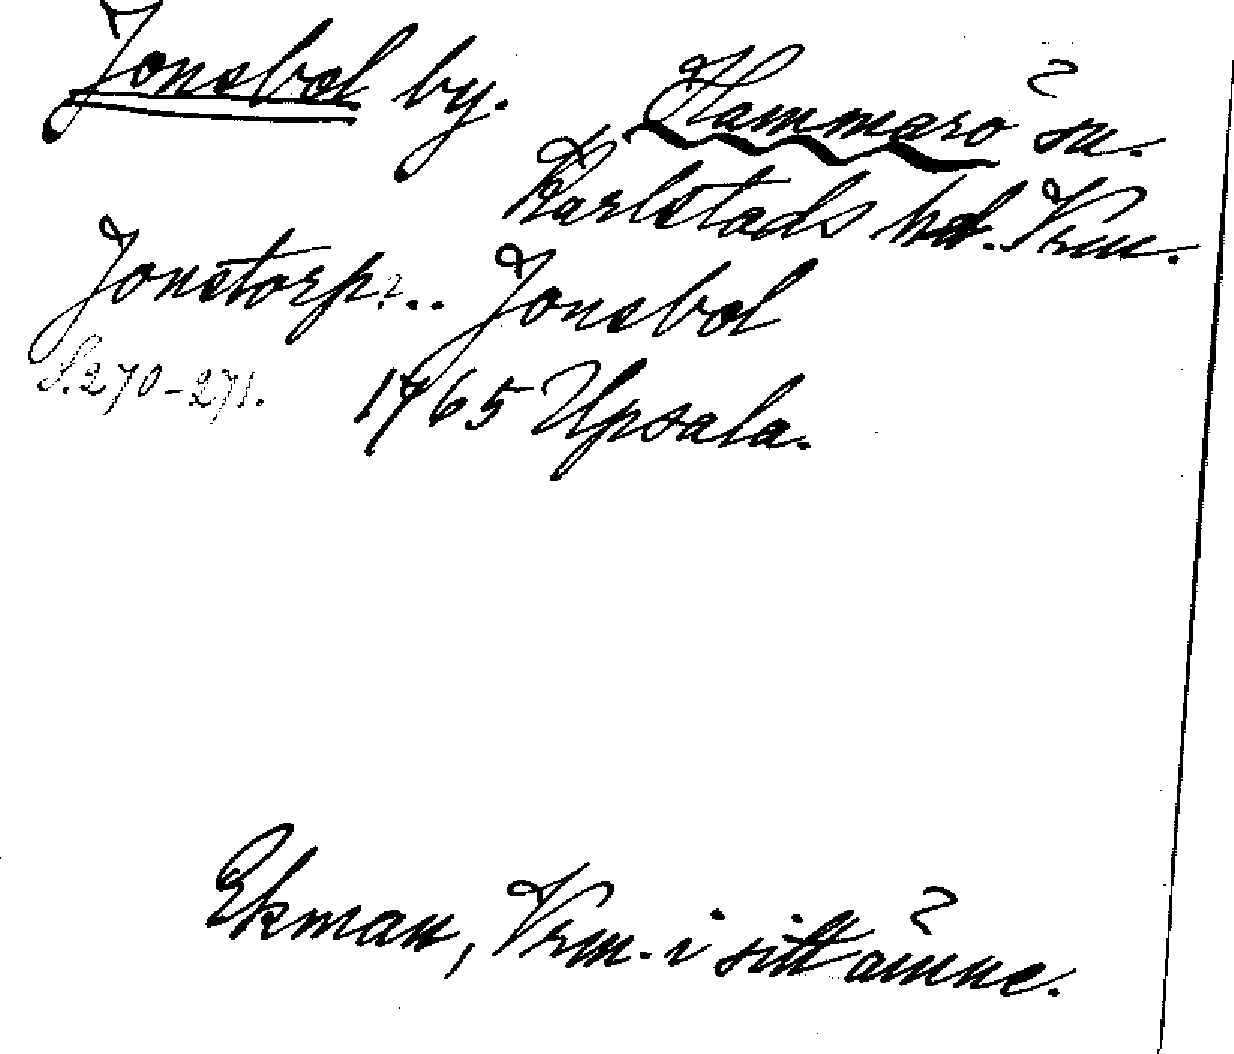 Jonsbol by. Hammarö sn.
Karlstads hd. Vrm.
Jonstorp?.. Jonsbol
S. 270-271. 1765 Upsala.
Ekman, Vrm. i sitt ämne.